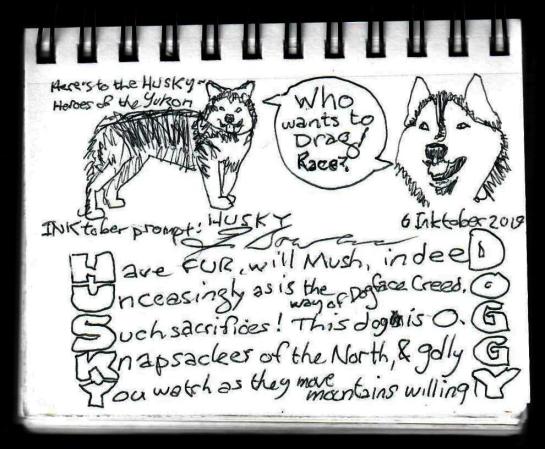 Here's to the HUSKY~
Heroes of the Yukon
Who
wants to
Drag
Race?
INKtober prompt: HUSKY
6 Inktober 2019
Have FUR, will Mush, indeeD
Unceasingly as is the way of Dogface Creed, O
Such sacrifices! This dog is O. G
Knapsackers of the North, & golly G
You watch as they move mountains willingY